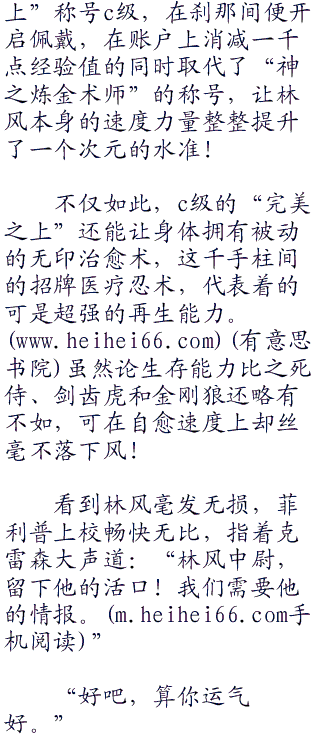 上”称号c级，在刹那间便开
启佩戴，在账户上消减一千
点经验值的同时取代了“神
之炼金术师”的称号，让林
风本身的速度力量整整提升
了一个次元的水准！
不仅如此，c级的“完美
之上”还能让身体拥有被动
的无印治愈术，这千手柱间
的招牌医疗忍术，代表着的
可是超强的再生能力。
(www.heihei66.com)(有意思
书院)虽然论生存能力比之死
侍、剑齿虎和金刚狼还略有
不如，可在自愈速度上却丝
毫不落下风！
看到林风毫发无损，菲
利普上校畅快无比，指着克
雷森大声道：“林风中尉，
留下他的活口！我们需要他
的情报。(m.heihei66.com手
机阅读)”
“好吧，算你运气
好。”